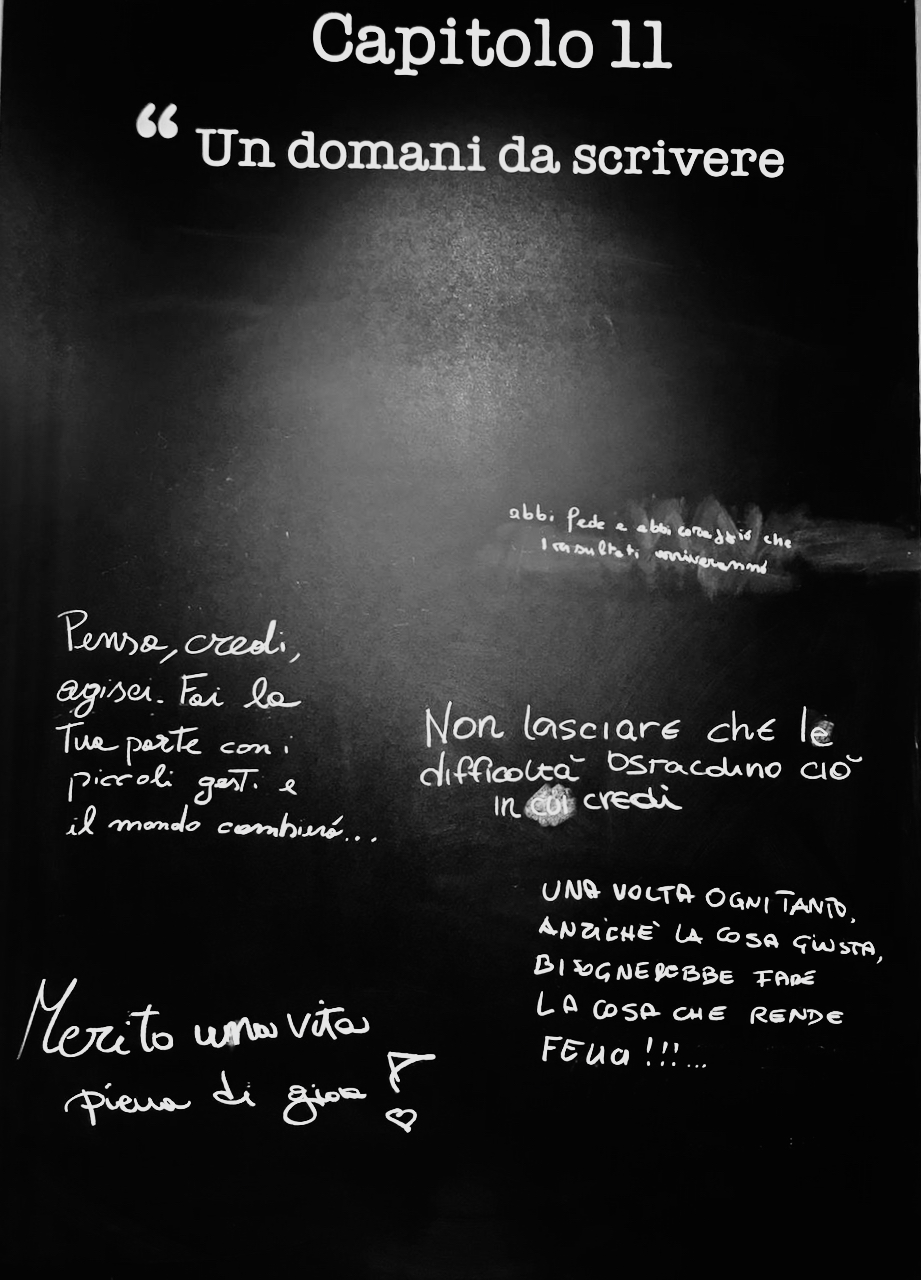 Capitolo 11
“ Un domani da scrivere
abbi fede e abbi coraggio che
i risultati arriveranno
Pensa, credi,
agisci. Fai la
Tua parte con i
piccoli gesti e
il mondo cambierà...
Non lasciare che le
difficoltà ostacolino ciò
in cui credi
UNA VOLTA OGNI TANTO,
ANZICHÈ LA COSA GIUSTA,
BISOGNEREBBE FARE
LA COSA CHE RENDE
FELICI !!!...
Merito una vita
piena di gioia !